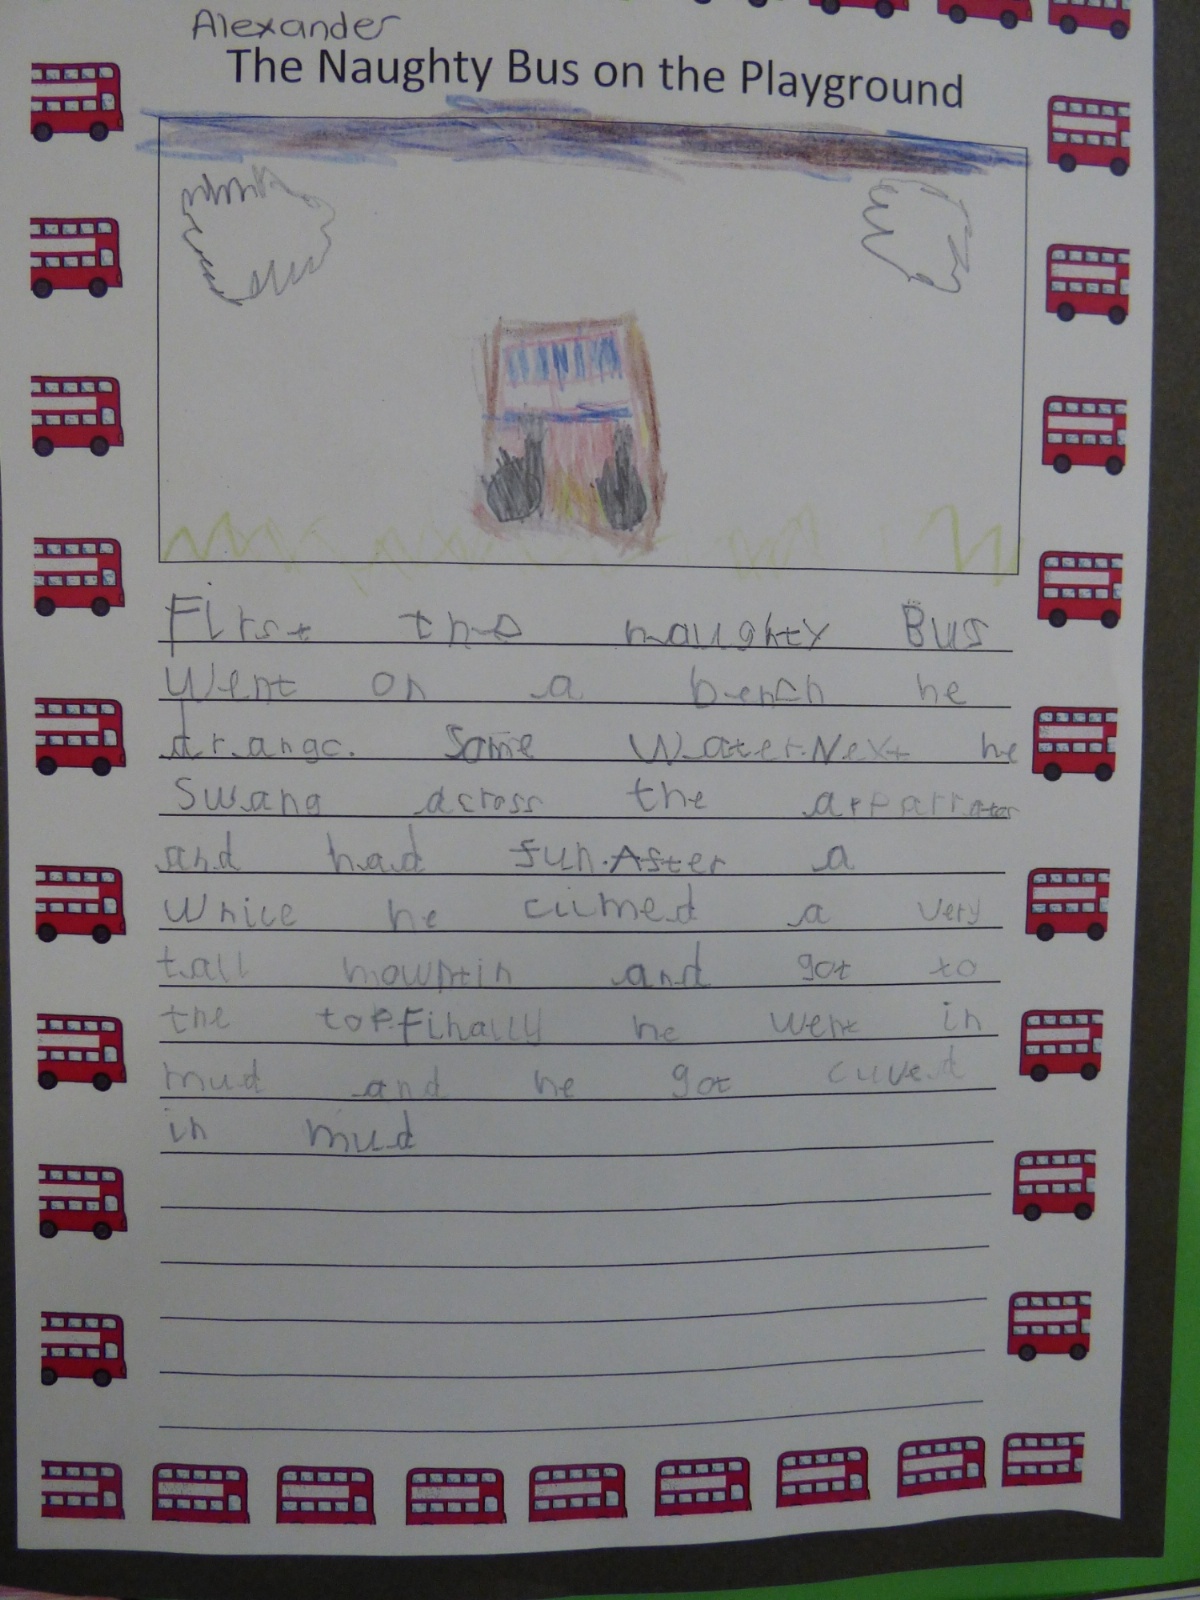 Alexander
The Naughty Bus on the Playground
First the naughty Bus
went on a bench he
drangc. Some Water. Next he
Swang across the apparratas
and had fun. After a
while he climed a very
tall mountin and got to
the top. Finally he went in
mud and he got cuved
in mud